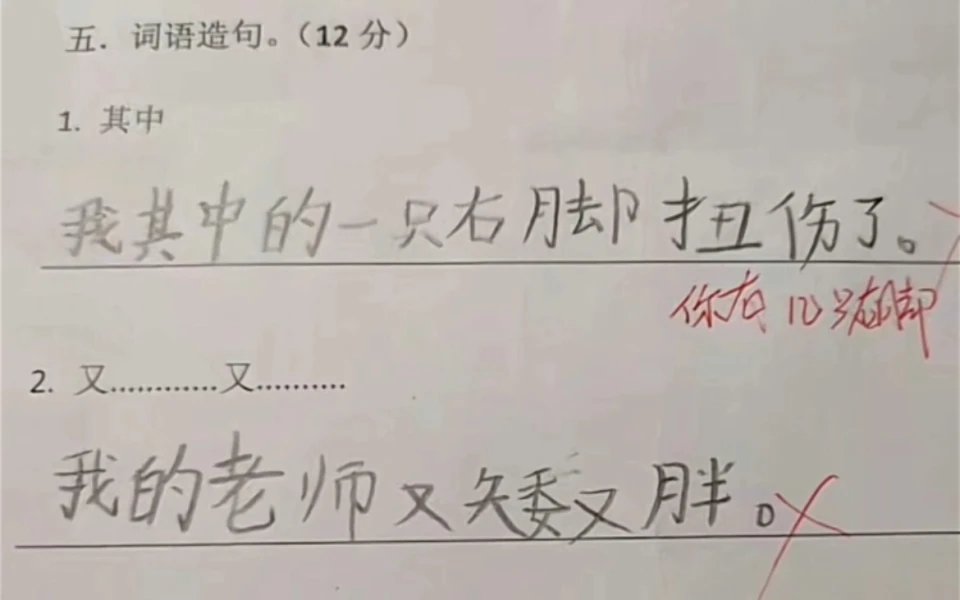 五. 词语造句。(12 分)
1. 其中
我其中的一只右脚扭伤了。
你有几只右脚
2. 又............又..........
我的老师又矮又胖。